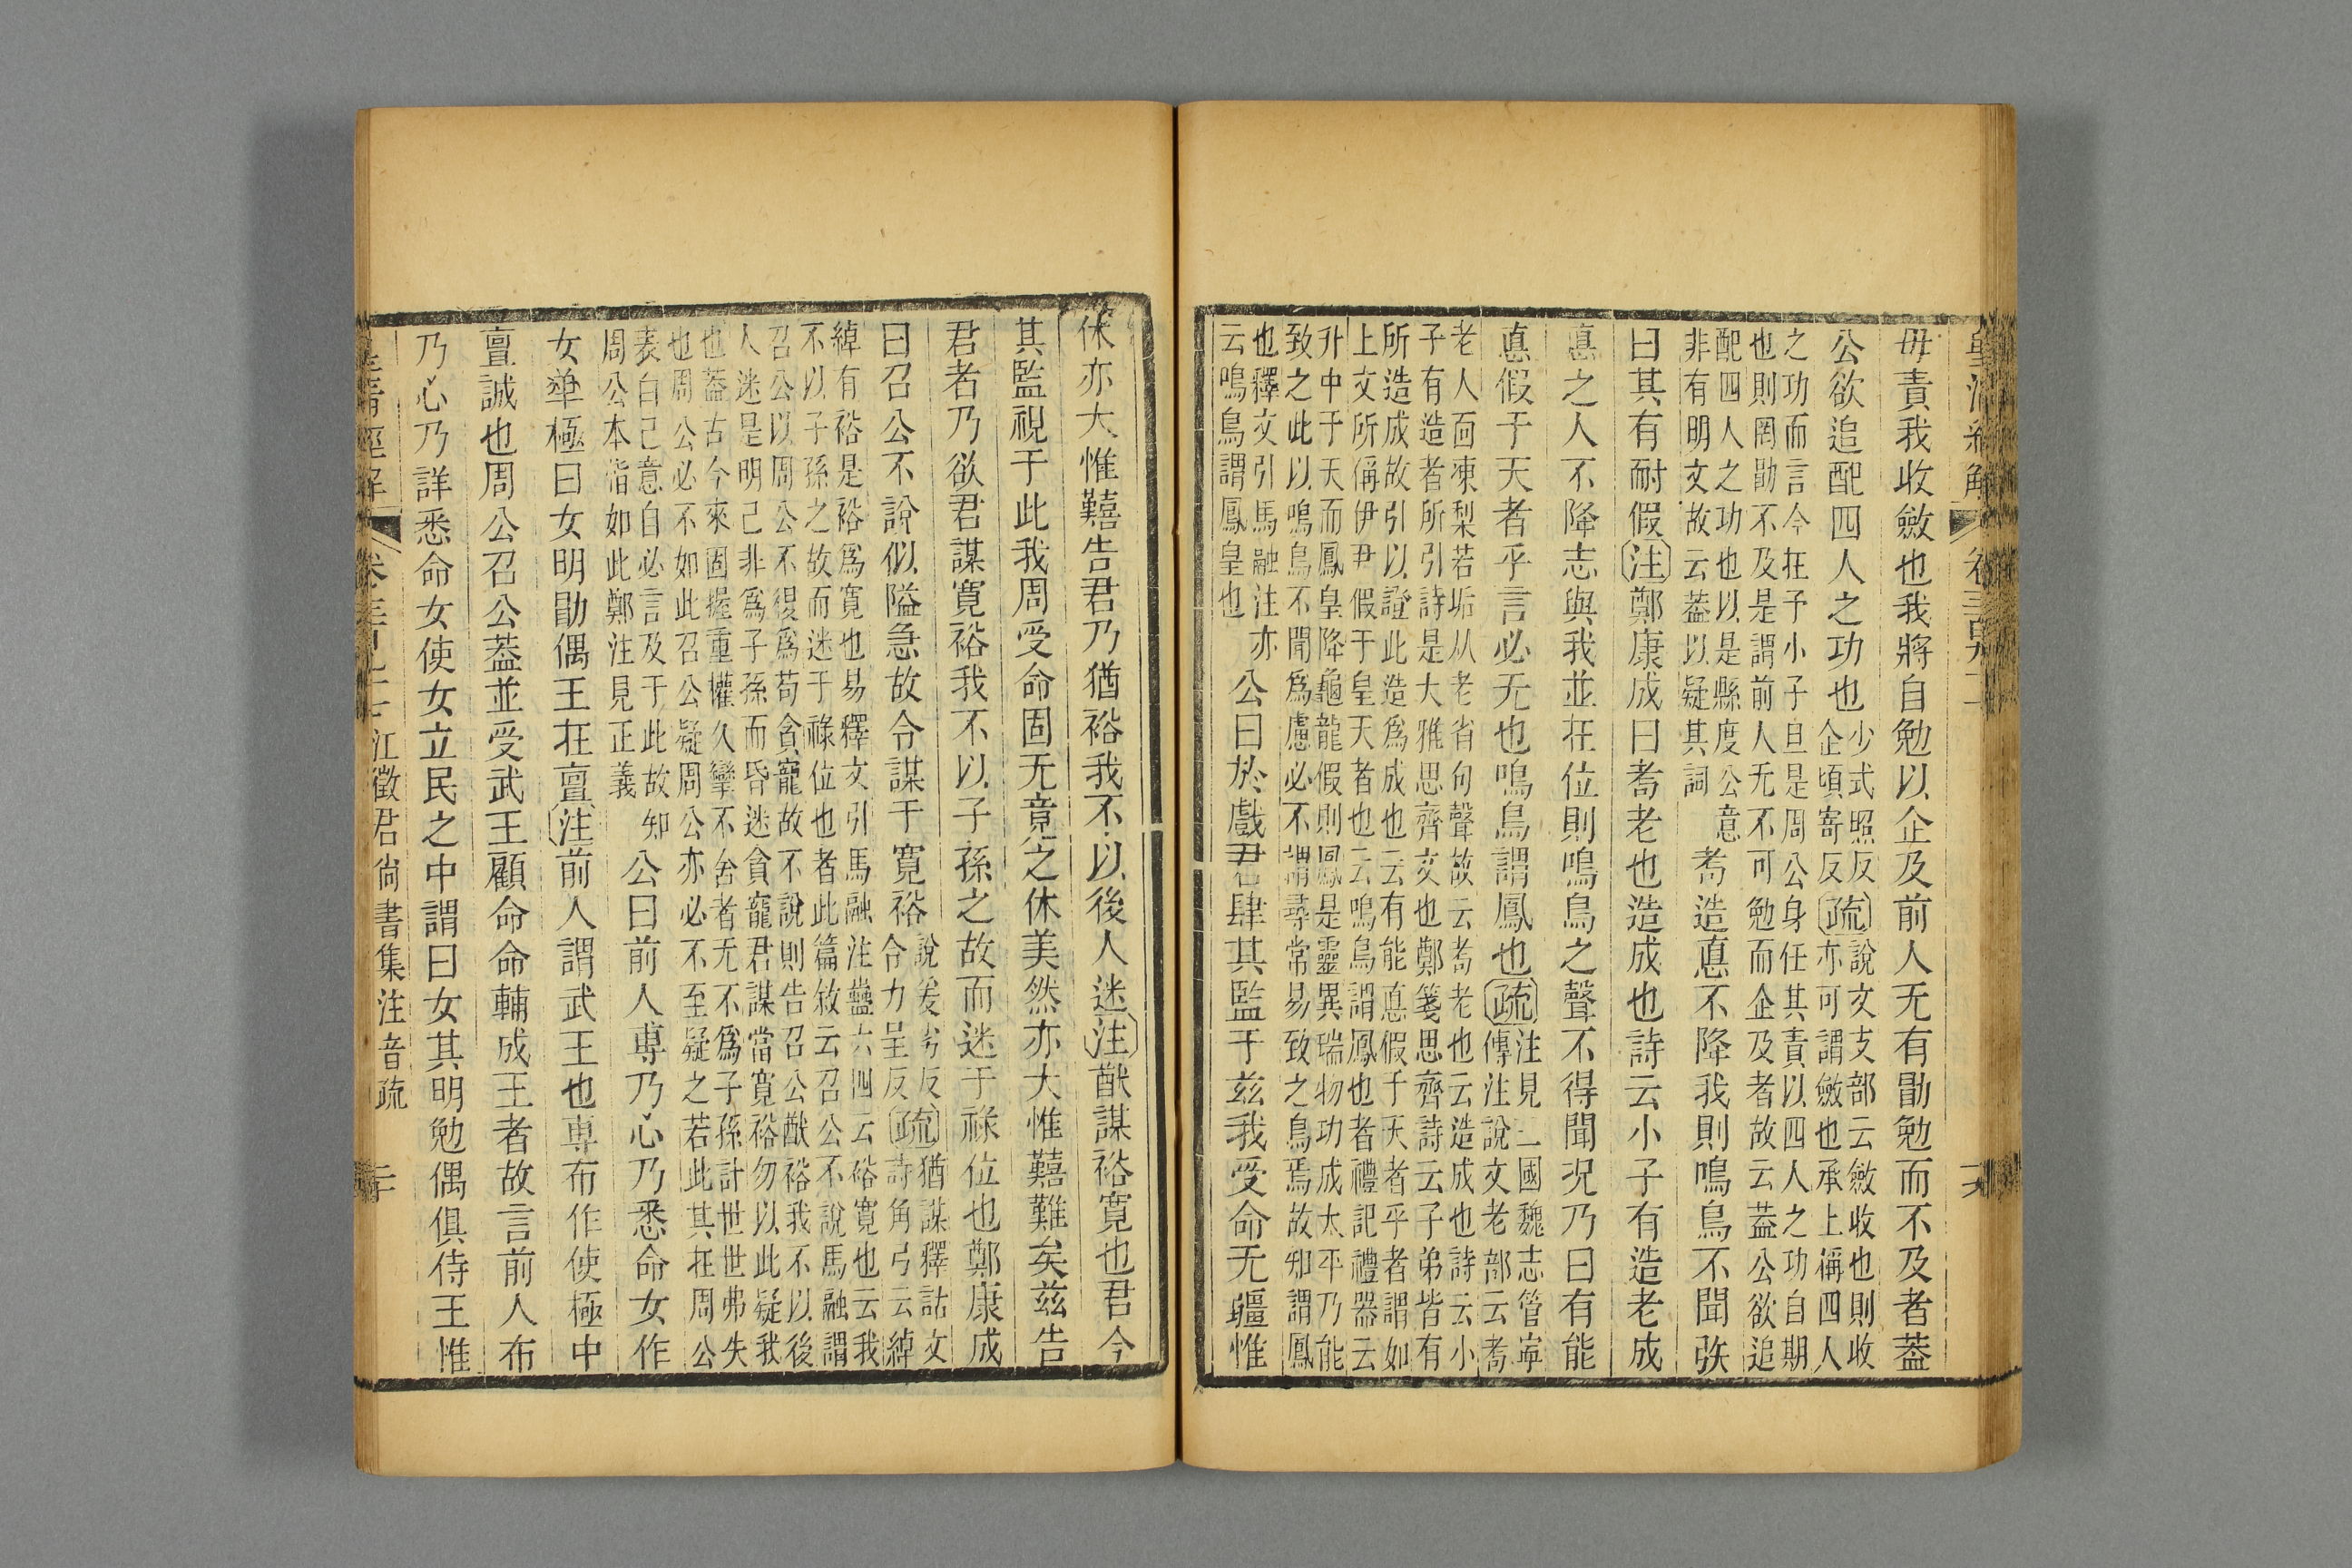 毋責我收斂也我將自勉以企及前人无有勖勉而不及者葢
公欲追配四人之功也
少式照反
企頃寄反
疏
說文攴部云斂收也則收
亦可謂斂也承上偁四人
之功而言今在予小子旦是周公身任其責以四人之功自期
也則罔勖不及是謂前人无不可勉而企及者故云葢公欲追
配四人之功也以是縣度公意
非有明文故云葢以疑其詞
耇造悳不降我則鳴鳥不聞矧
曰其有耐假注鄭康成曰耇老也造成也詩云小子有造老成
悳之人不降志與我並在位則鳴鳥之聲不得聞況乃曰有能
悳假于天者乎言必无也鳴鳥謂鳳也疏
注見三國魏志管寧
傳注說文老部云耇
老人面凍梨若垢从老省句聲故云耇老也云造成也詩云小
子有造者所引詩是大雅思齊文也鄭箋思齊詩云子弟皆有
所造成故引以證此造爲成也云有能悳假于天者乎者謂如
上文所偁伊尹假于皇天者也云鳴鳥謂鳳也者禮記禮器云
升中于天而鳳皇降龜龍假則鳳是靈異瑞物功成太平乃能
致之此以鳴鳥不聞爲慮必不謂尋常易致之鳥焉故知謂鳳
也釋文引馬融注亦
云鳴鳥謂鳳皇也
公曰於戲君肆其監于茲我受命无疆惟
休亦大惟囏告君乃猶裕我不以後人迷注猷謀裕寬也君今
其監視于此我周受命固无竟之休美然亦大惟囏難矣茲告
君者乃欲君謀寬裕我不以子孫之故而迷于祿位也鄭康成
曰召公不說似隘急故令謀于寬裕
說爰劣反
令力呈反
疏
猶謀釋詁文
詩角弓云綽
綽有裕是裕爲寬也易釋文引馬融注蠱六四云裕寬也云我
不以子孫之故而迷于祿位也者此篇敘云召公不說馬融謂
召公以周公不得爲苟貪寵故不說則告召公猷裕我不以後
人迷是明己非爲子孫而昏迷貪寵君謀當寬裕勿以此疑我
也葢古今來固握重權久孿不舍者无不爲子孫計世世弗失
也周公必不如此召公疑周公亦必不至疑之若此其在周公
表白己意自必言及于此故知
周公本恉如此鄭注見正義
公曰前人専乃心乃悉命女作
女𠦒極曰女明勖偶王在亶注前人謂武王也専布作使極中
亶誠也周公召公葢並受武王顧命命輔成王者故言前人布
乃心乃詳悉命女使女立民之中謂曰女其明勉偶俱侍王惟
江徵君尙書集注音疏